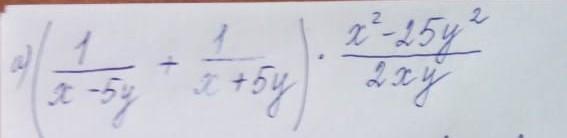 а) (1/(x-5y) + 1/(x+5y)) · (x²-25y²)/(2xy)